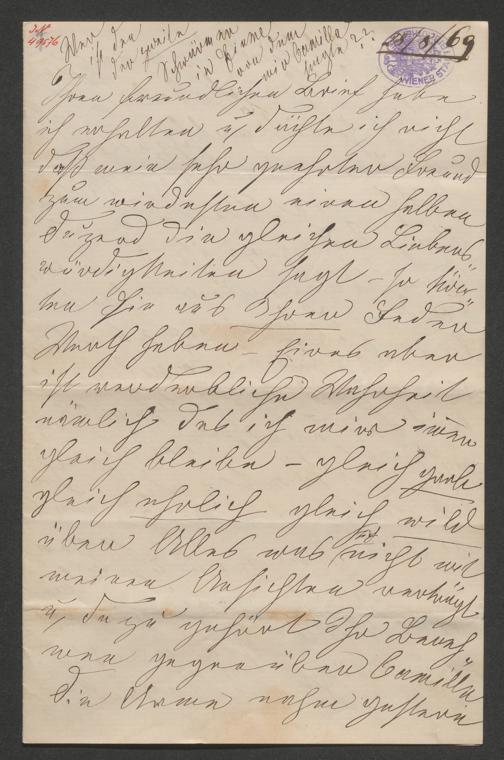 I.N.
49576
Wer
ist der
der zweite
Schwärmer
in Ihrem
von dem
mir Camilla
sagte??
25/8/69
Ihren freundlichen Brief habe
ich erhalten u dächte ich nicht
daß mein sehr geehrter Freund
zum mindesten einen halben
Duzend die gleichen Liebens
würdigkeiten sagt – so könn
ten sie aus Ihrer Feder
Werth haben – Eines aber
ist unverderbliche Wahrheit
nämlich daß ich mir immer
gleich bleibe – gleich grob
gleich ehrlich gleich wild
über Alles was sich nicht mit
meinen Ansichten verträgt
u dazu gehört Ihr Beneh
men gegenüber Camilla
die Arme nahm gestern